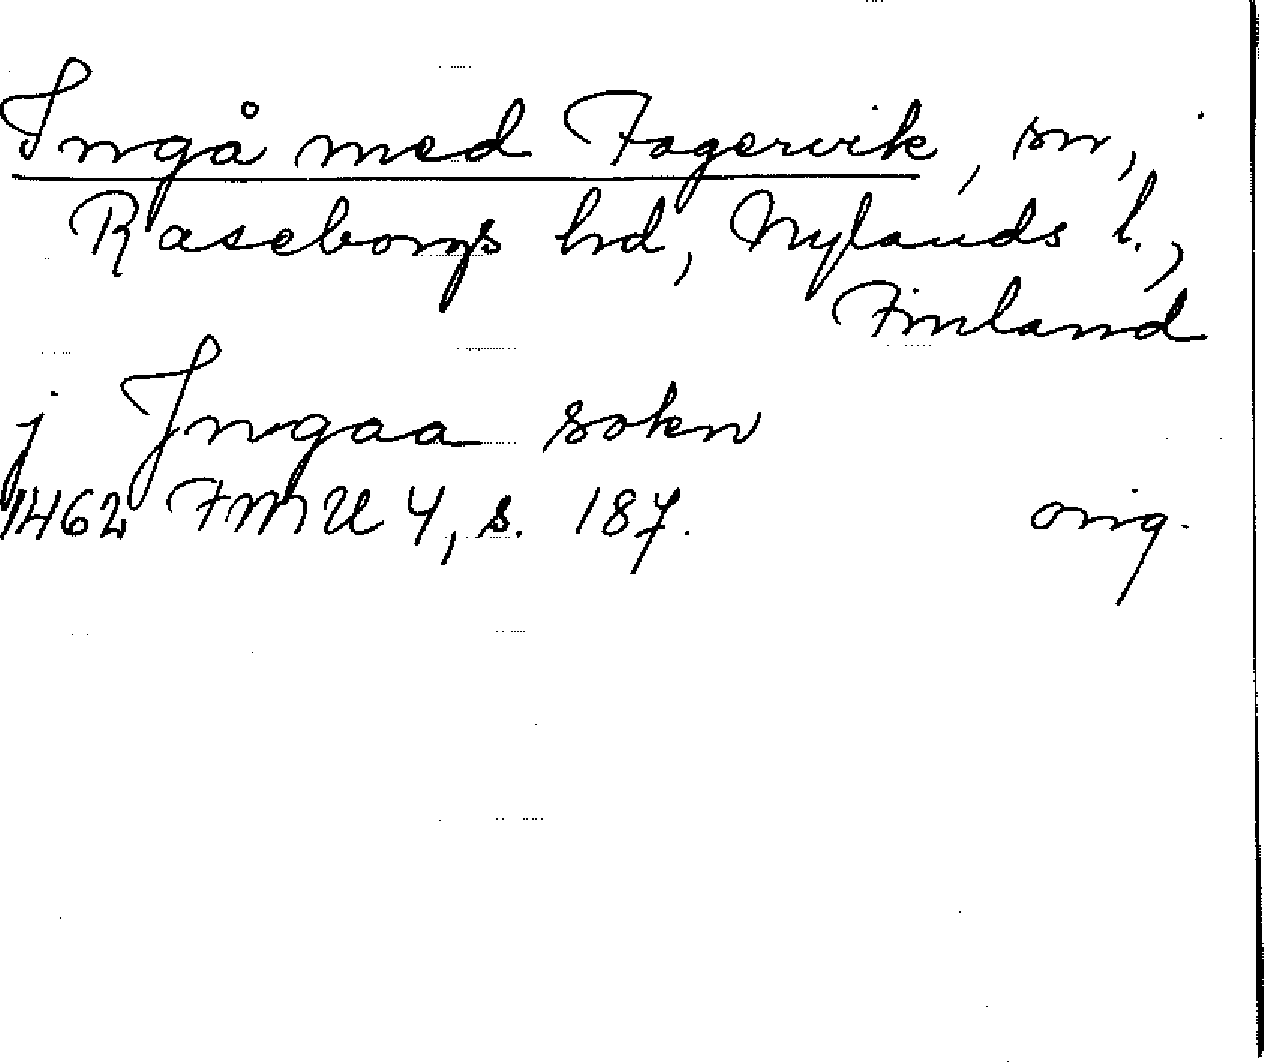 Ingå med Fagervik, sn,
Raseborgs hd, Nylands l.,
Finland
j Jngaa sokn
1462 FMU 4, s. 187. orig.